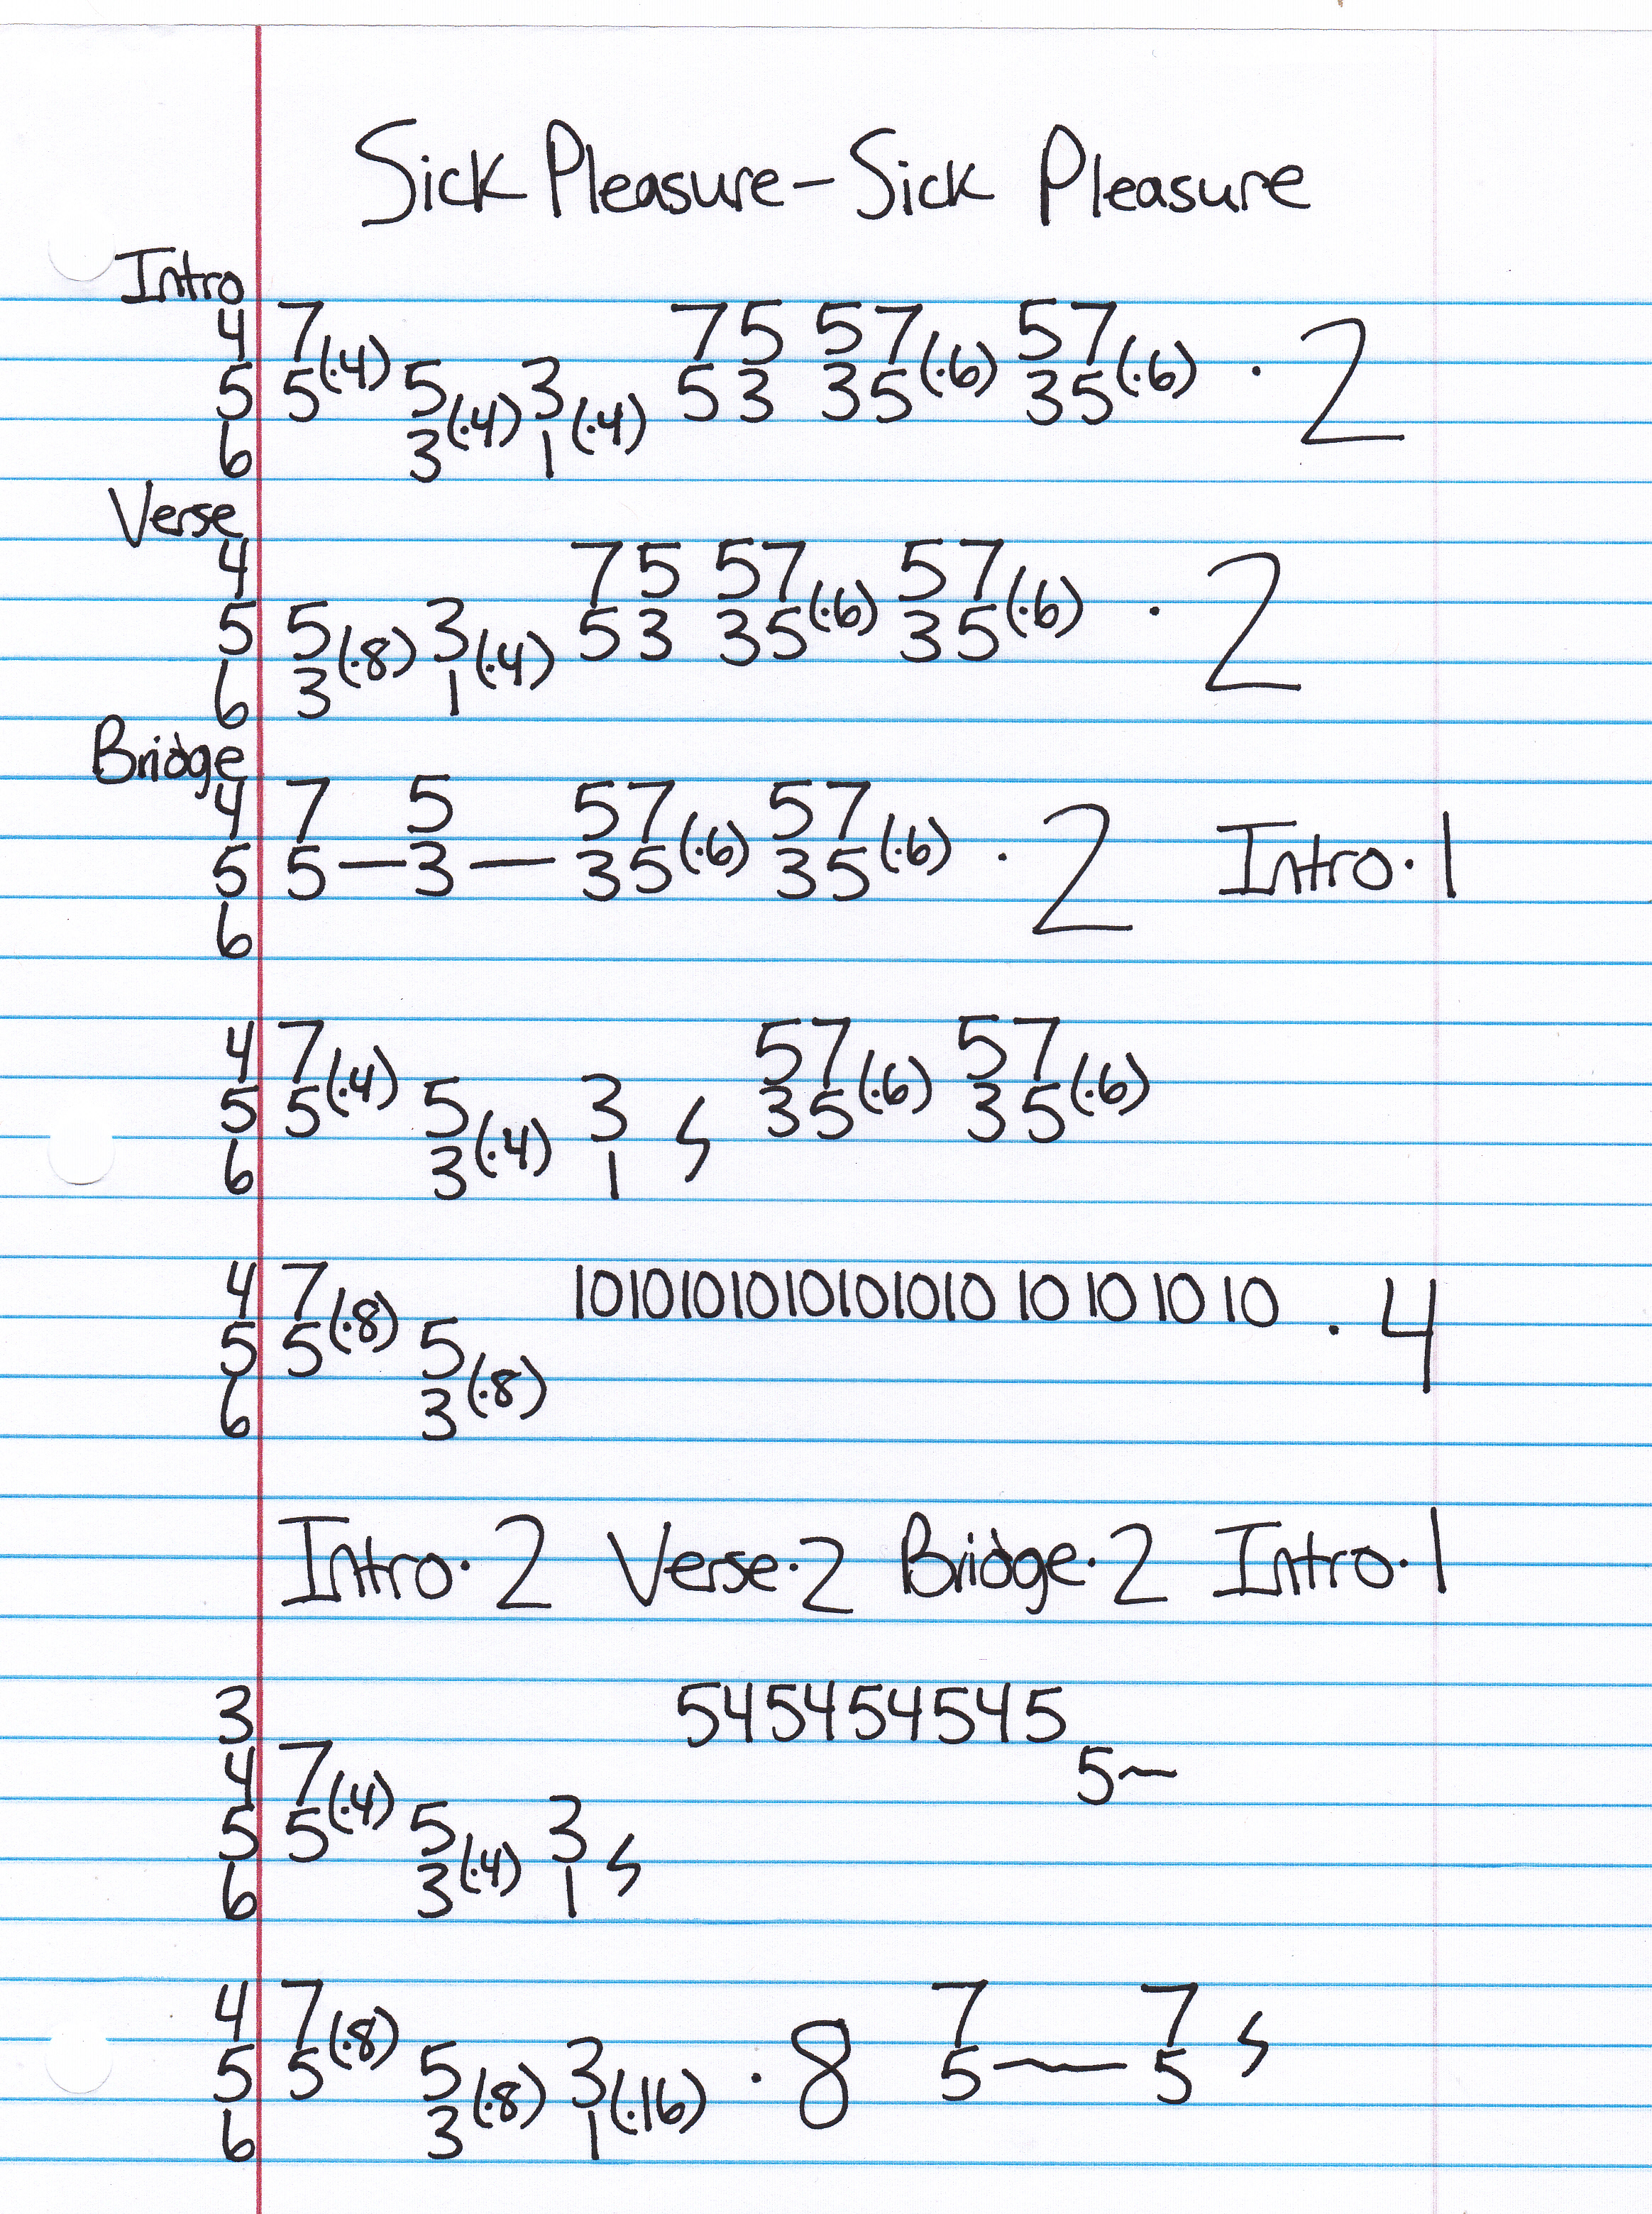 Sick Pleasure - Sick Pleasure
Intro
4 7 75 57 57
5 5(·4) 5 3 53 35(·6) 35(·6) · 2
6 3(·4) 1(·4)
Verse
4 75 57 57
5 5 3 53 35(·6) 35(·6) · 2
6 3(·8) 1(·4)
Bridge
4 7 5 57 57
5 5—3— 35(·6) 35(·6) · 2 Intro·1
6
4 7 57 57
5 5(·4) 5 3 35(·6) 35(·6)
6 3(·4) 1
4 7 10101010101010 10 10 10 10 10 · 4
5 5(·8) 5
6 3(·8)
Intro·2 Verse·2 Bridge·2 Intro·1
3 545454545
4 7 5~
5 5(·4) 5 3
6 3(·4) 1
4 7 7 7
5 5(·8) 5 3 · 8 5~5
6 3(·8) 1(·16)